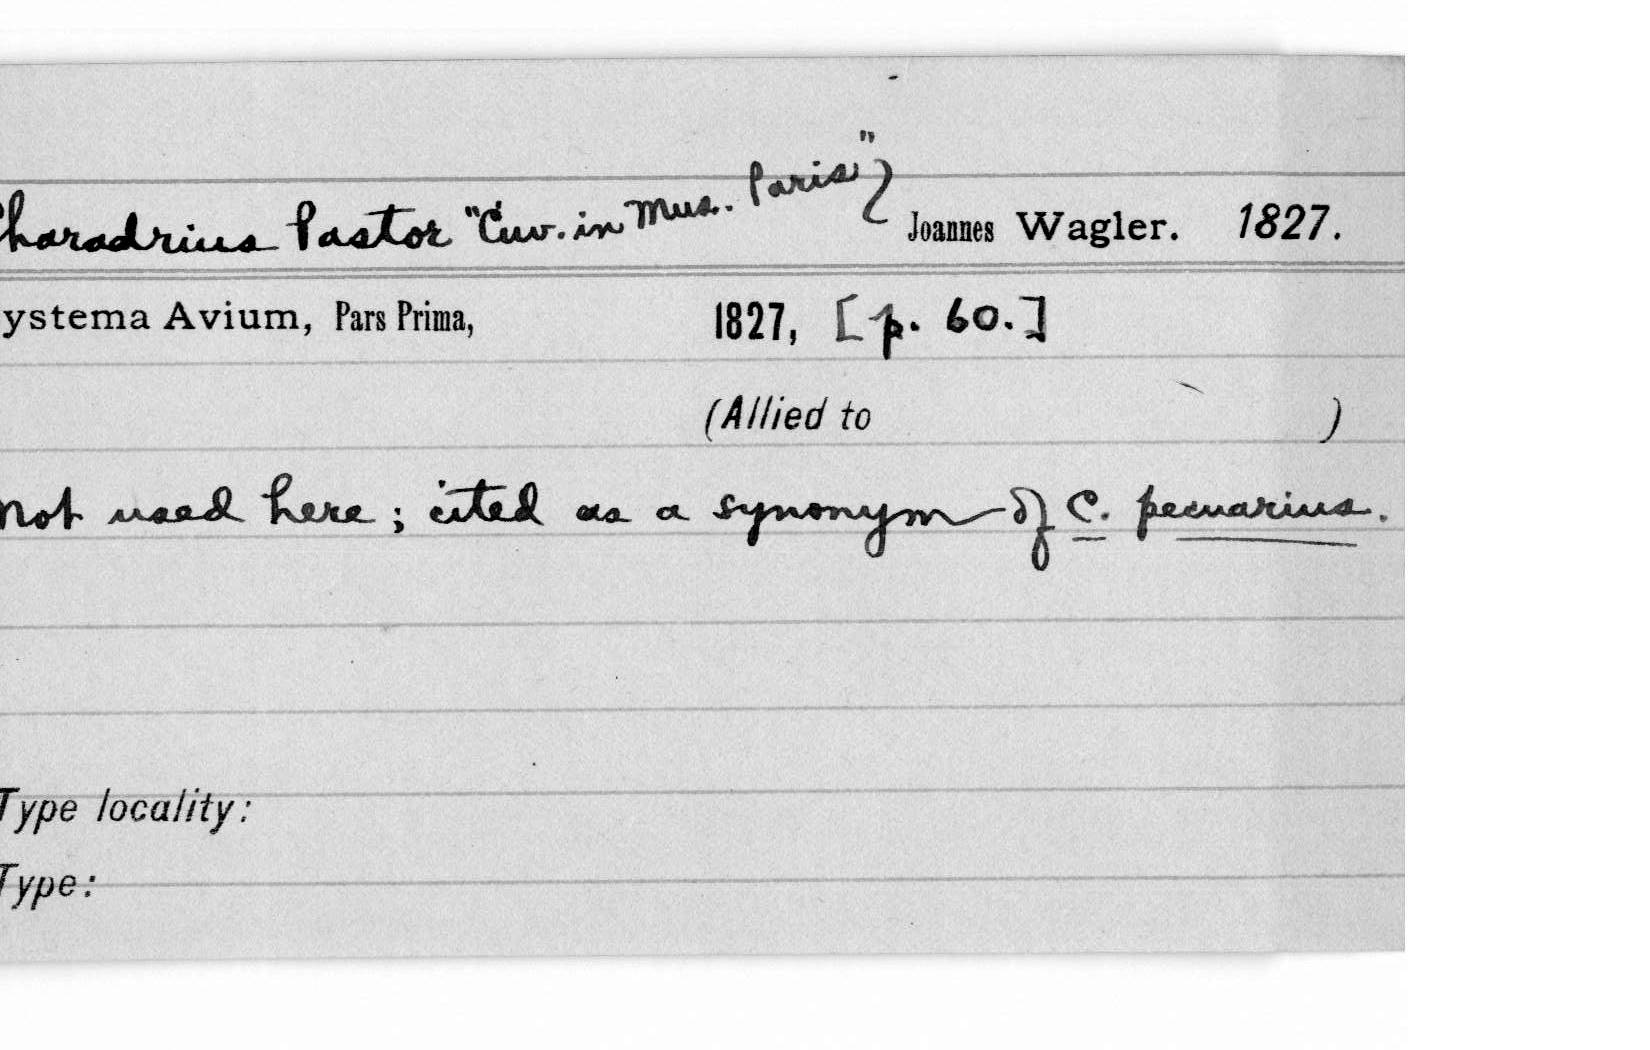 Charadrius Pastor "Cuv. in Mus. Paris" Joannes Wagler. 1827.
ystema Avium, Pars Prima, 1827, [p. 60.]
(Allied to )
Not used here; cited as a synonym of C. pecuarius.
Type locality:
Type: